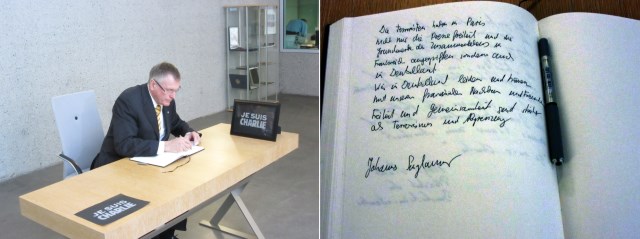 JE SUIS
CHARLIE
JE SUIS
CHARLIE
Die Terroristen haben in Paris
nicht nur die Pressefreiheit und die
Grundwerte des Zusammenlebens in
Frankreich angegriffen sondern auch
in Deutschland.
Wir in Deutschland leiden und trauern
mit unseren französischen Nachbarn und Freunden.
Freiheit und Gemeinsamkeit sind stärker
als Terrorismus und
Johannes